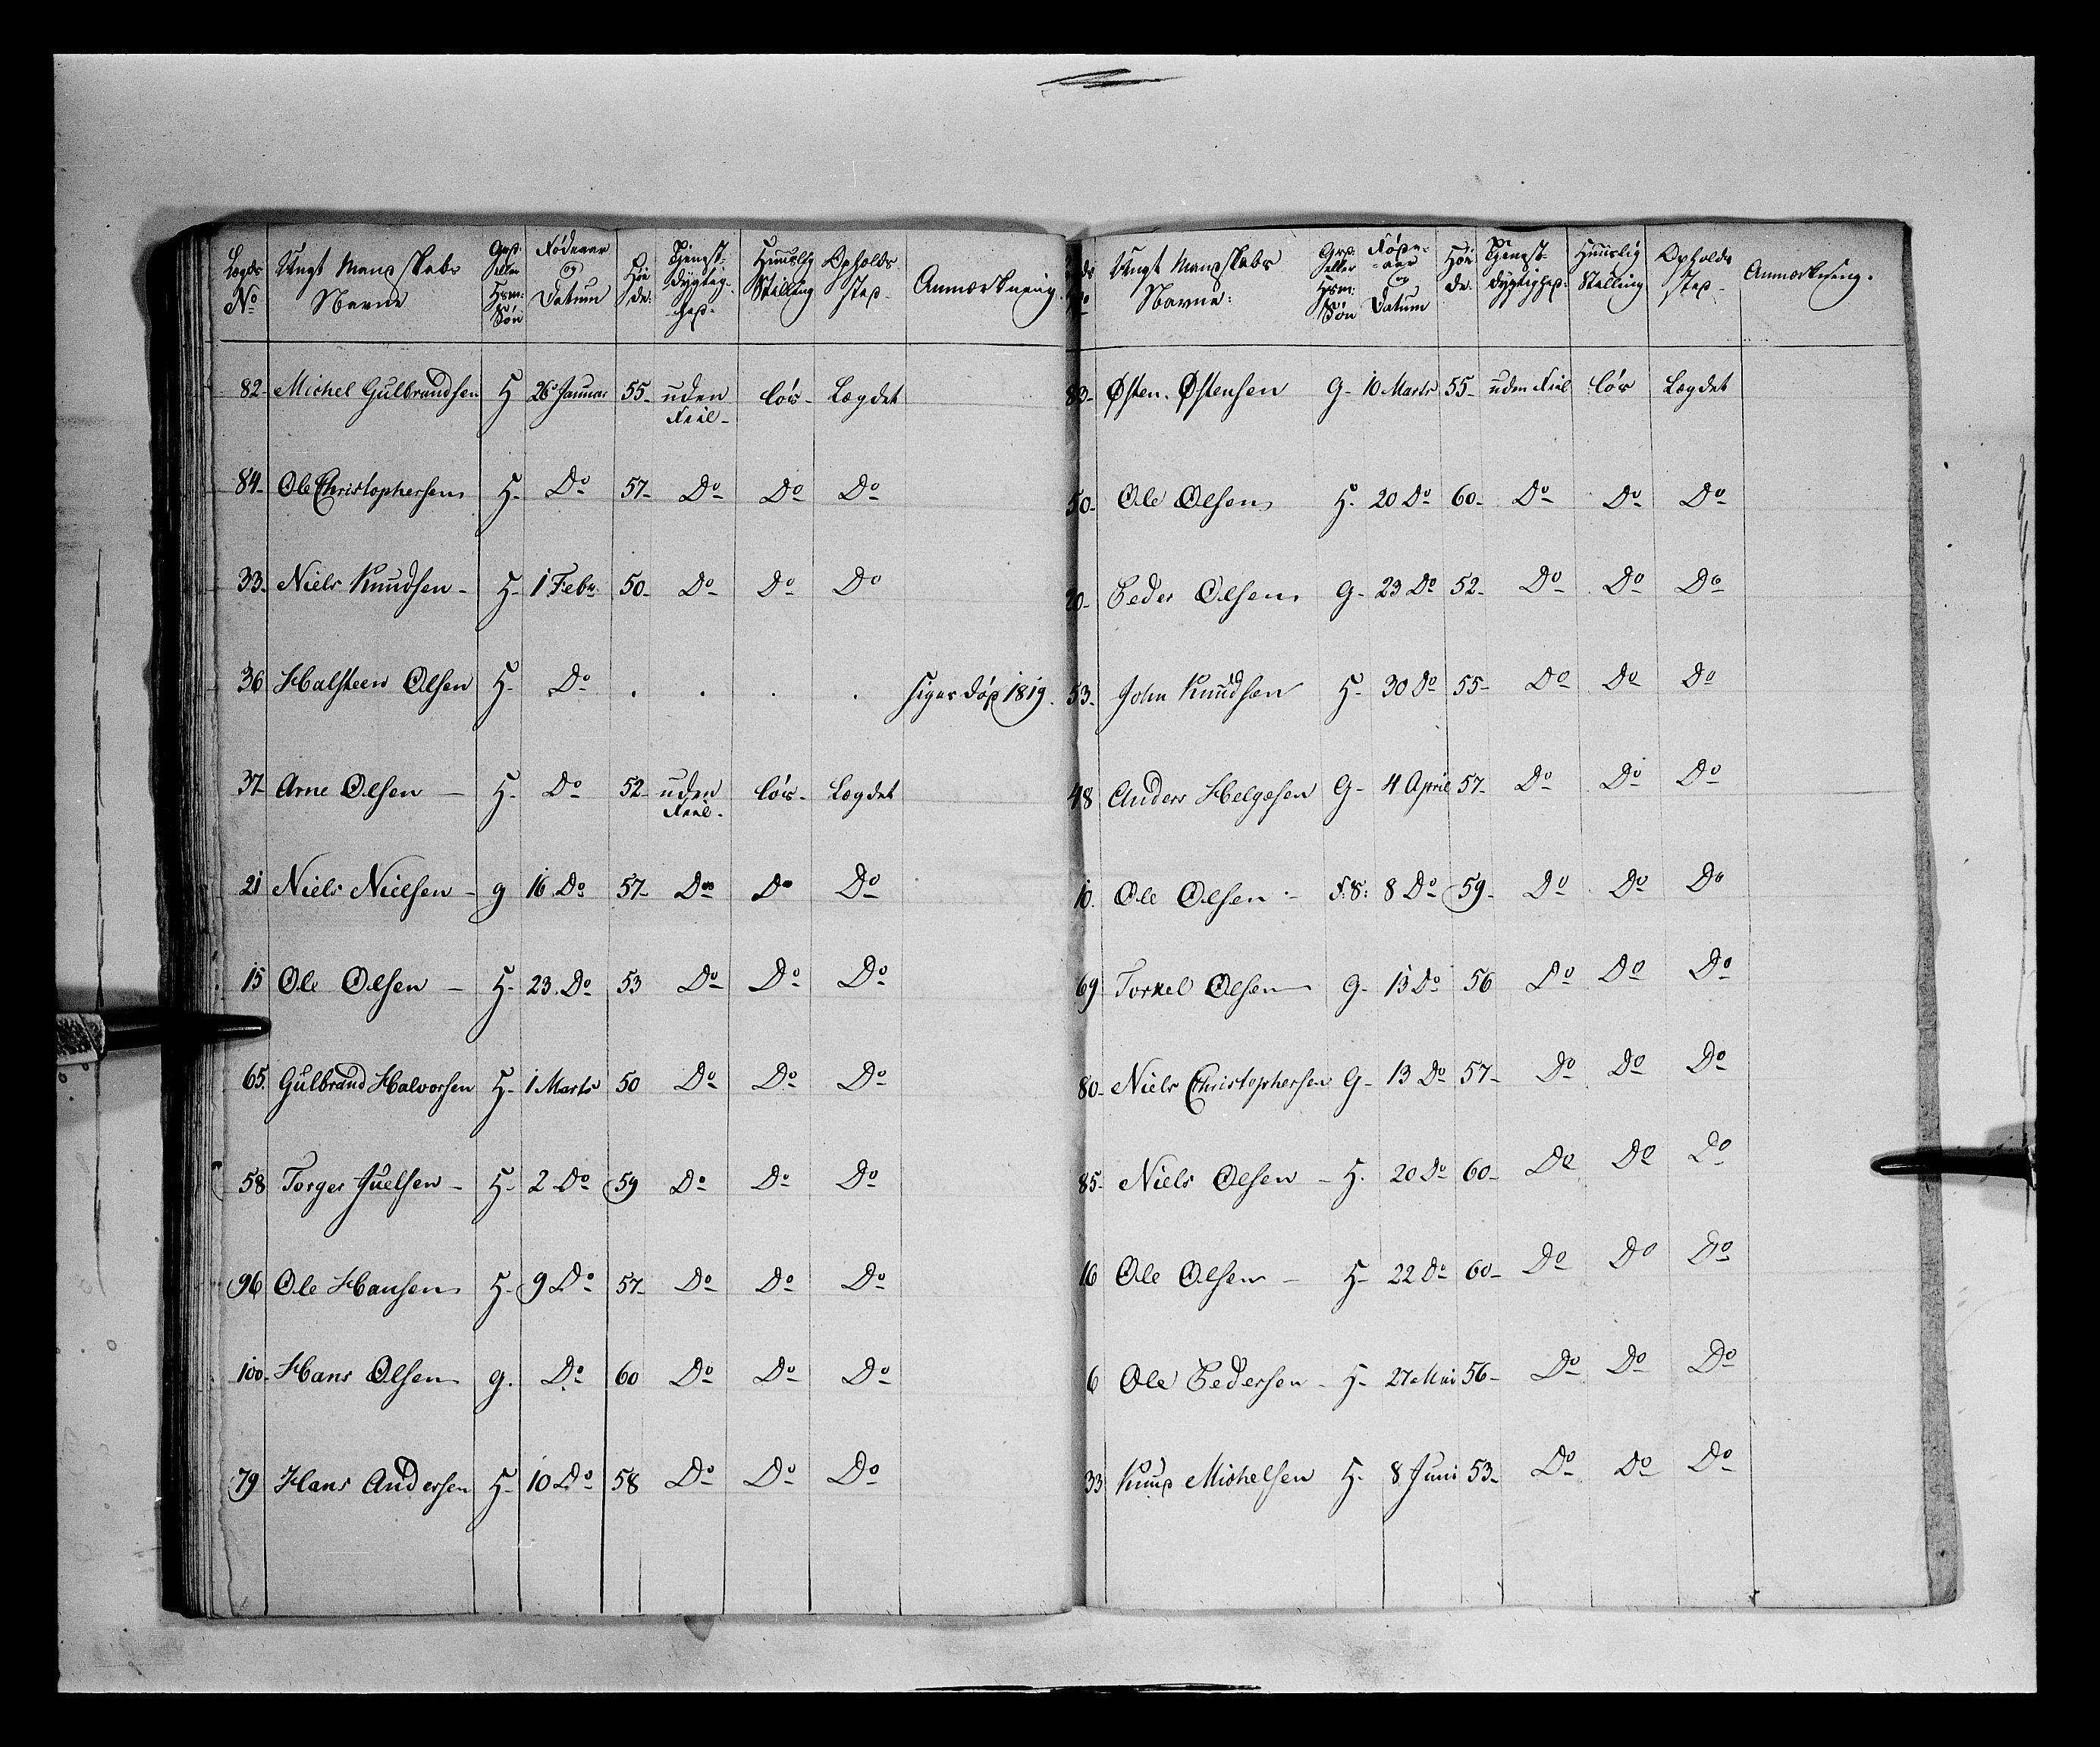 Lægds No | Ungt Mandskabs Navne | Grd: eller Hsm: Søn | Fødeaar og Datum | Høide: | Tienestdygtighed | Huuslig Stilling | Opholds sted | Anmærkning.
82- Michel Gulbrandsen H 26 Januar 55- uden Feil- løs- Lægdet
84- Ole Christophersen H- Do 57- Do Do Do
33- Niels Knudsen- H- 1 Febr 50- Do Do Do
36 Halsteen Olsen H- Do . . . . siges død 1819.
37- Arne Olsen- H- Do 52- uden Feil. løs- Lægdet
21 Niels Nielsen- g 16 Do 57- Do Do Do
15 Ole Olsen- H- 23 Do 53 Do Do Do
65. Gulbrand Halvorsen H- 1 Marts 50 Do Do Do
58 Torger Juelsen- H- 2 Do 59 Do Do Do
96 Ole Hansen H- 9 Do 57- Do Do Do
100- Hans Olsen g. Do 60 Do Do Do
79 Hans Andersen H- 10 Do 58 Do Do Do
Ungt Mandskabs Navne: | Grd: eller Hsm: Søn | Fødeaar og Datum | Høide: | Tienestdygtighed: | Huuslig Stilling | Opholds sted- | Anmærkning.
83- Østen Østensen G- 10 Marts 55- uden Feil løs Lægdet
50- Ole Olsen H- 20 Do 60- Do Do Do
20- Peder Olsen G- 23 Do 52- Do Do Do
53- John Knudsen H- 30 Do 55- Do Do Do
48 Anders Helgesen G- 4 April 57- Do Do Do
10. Ole Olsen- 8 Do 59- Do Do Do
69 Torkel Olsen G- 13 Do 56 Do Do Do
80- Niels Christophersen G- 13 Do 57- Do Do Do
85- Niels Olsen- H. 20 Do 60- Do Do Do
16 Ole Olsen- H- 22 Do 60- Do Do Do
6 Ole Pedersen- H- 27 Mai 56- Do Do Do
33 Knud Michelsen H- 8 Juni 53- Do Do Do